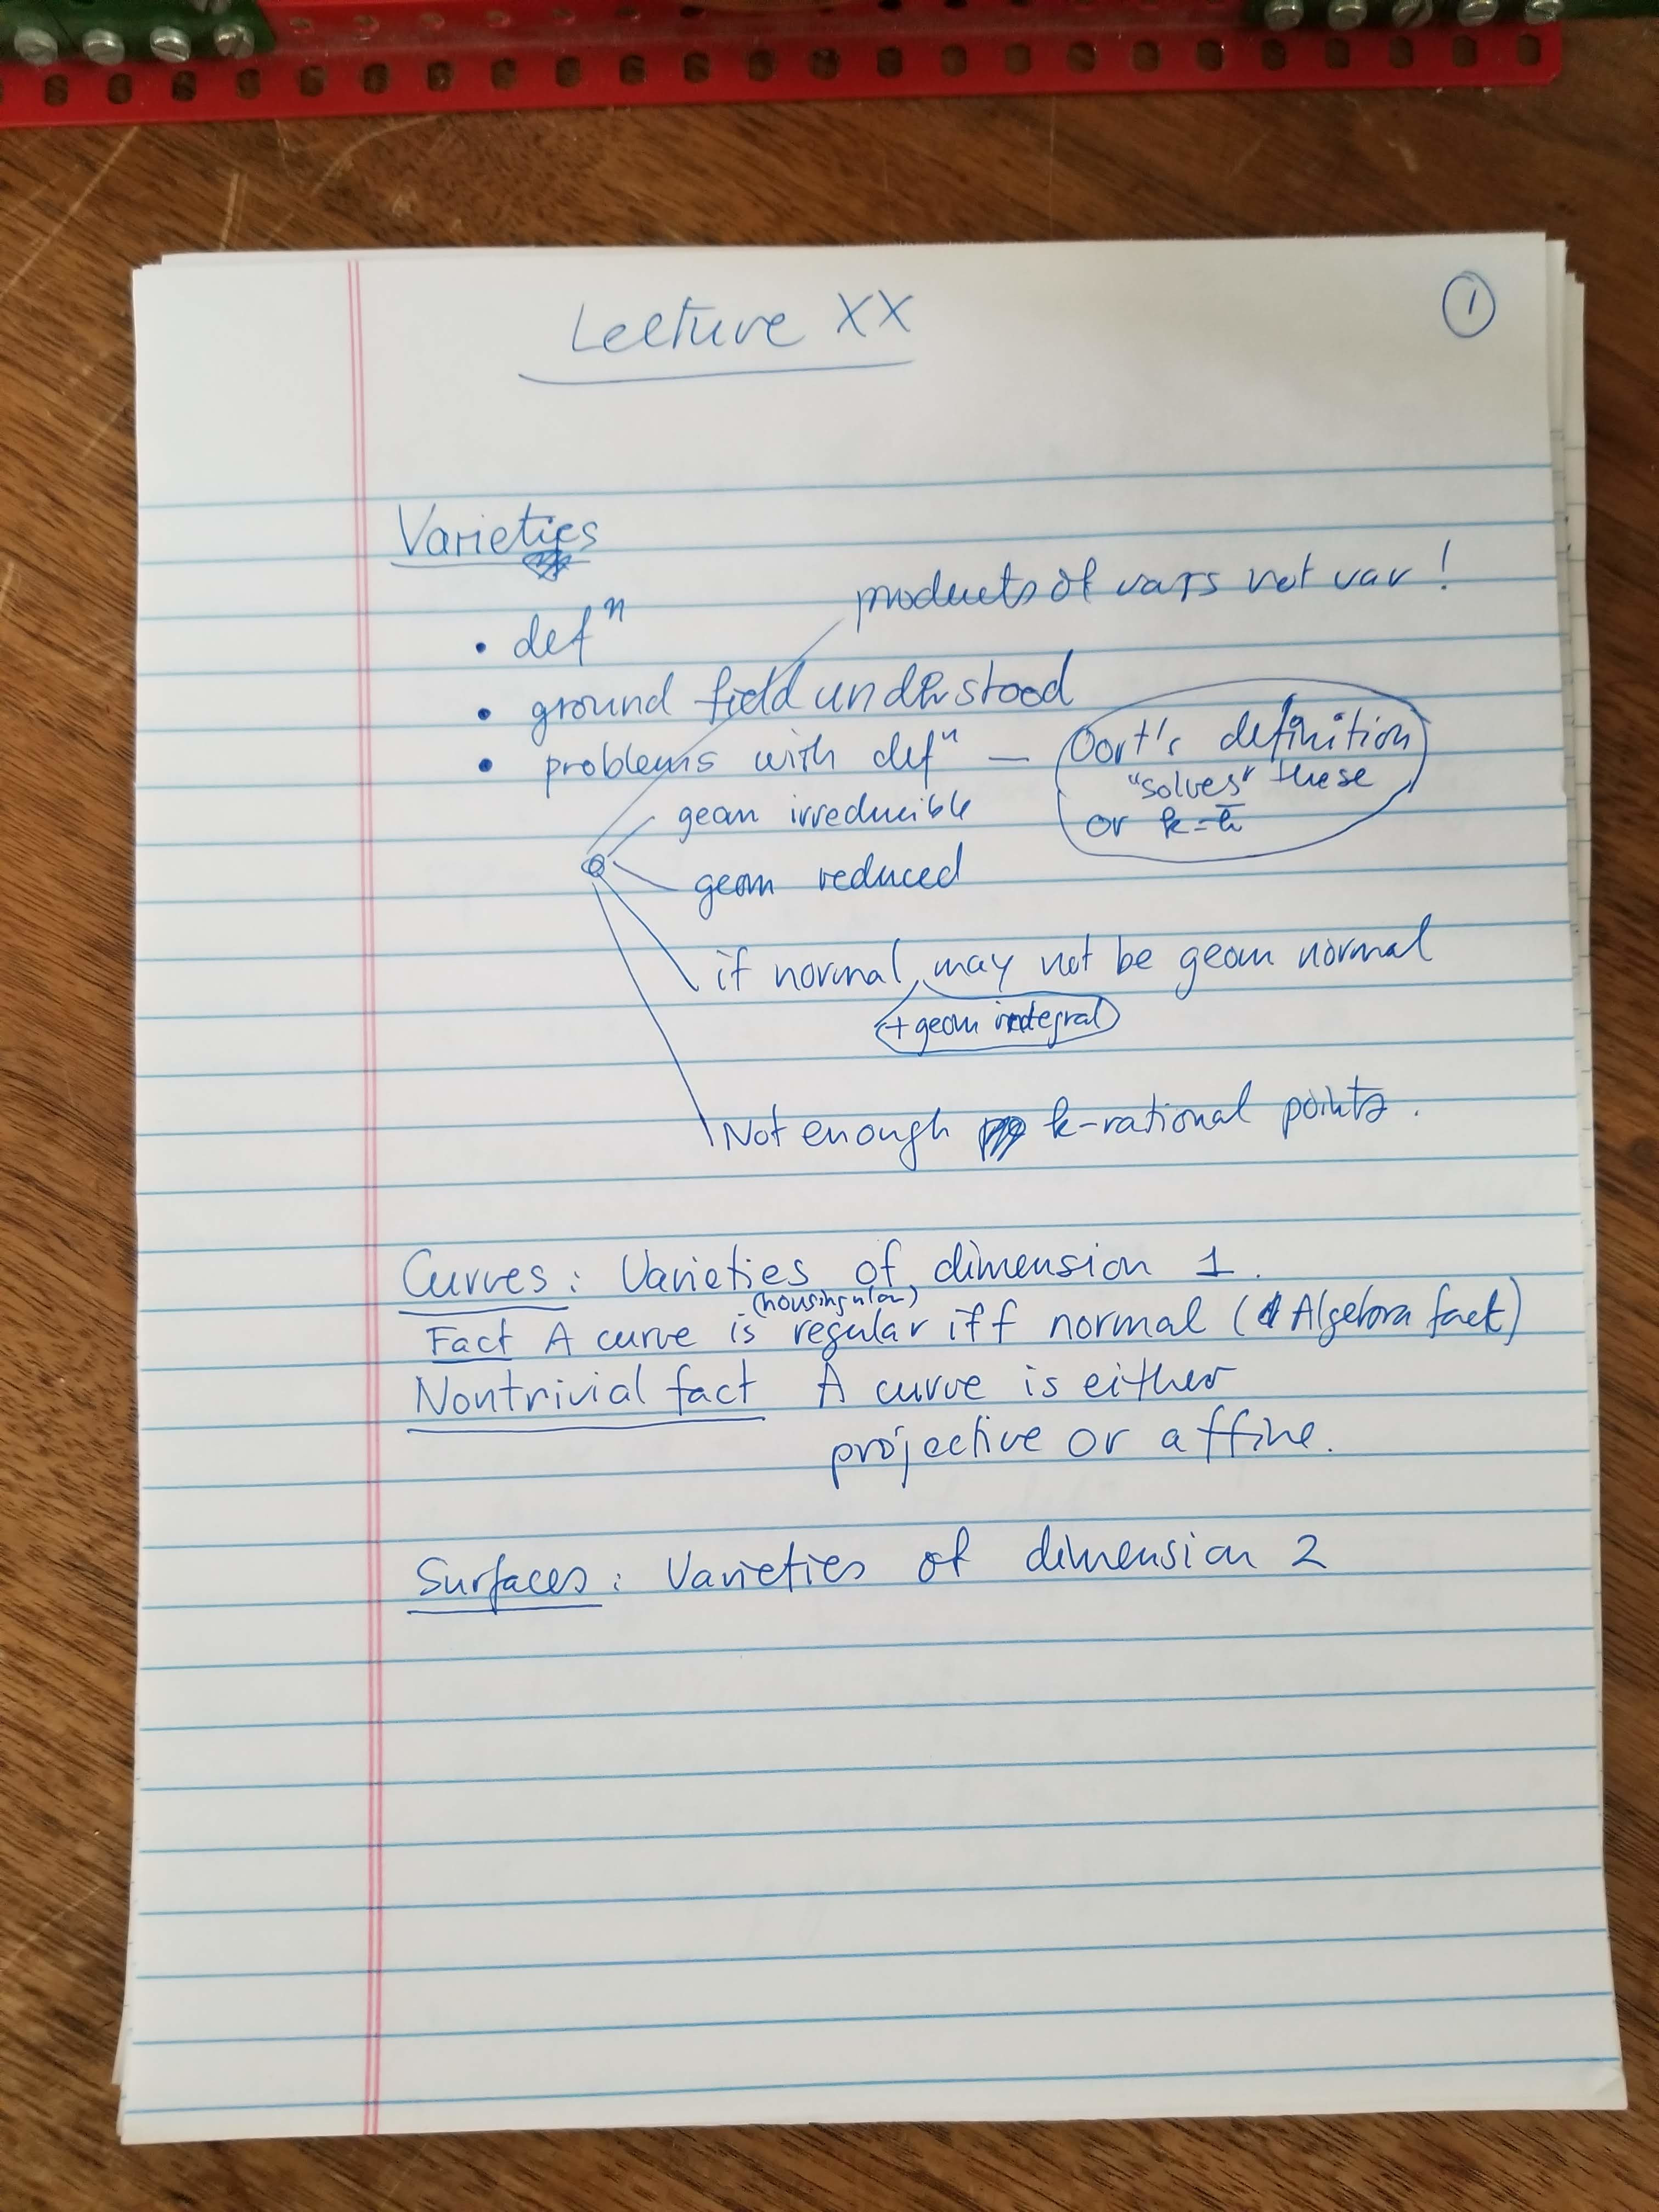 Lecture XX
1
Varieties
products of vars not var!
• defⁿ
• ground field understood
• problems with defⁿ — Oort's definition
"solves" these
or k = k̄
geom irreducible
geom reduced
if normal, may not be geom normal
+ geom integral
Not enough k-rational points.
Curves: Varieties of dimension 1.
(nonsingular)
Fact A curve is regular iff normal (Algebra fact)
Nontrivial fact A curve is either
projective or affine.
Surfaces: Varieties of dimension 2